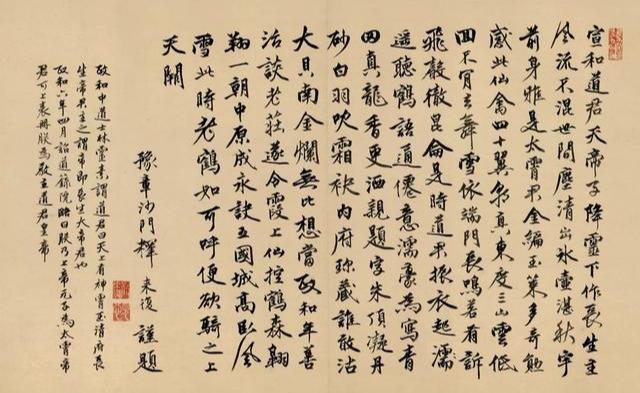 宣和道君天帝子降靈下作長生主
風流不混世間塵清出氷壺湛秋宇
前身雅是太霄君金編玉策多奇勲
感此仙禽四十翼朝真東度三山雲低
回不肯去舞雪依端門長鳴若有訴
飛轂徹崑侖是時道君振衣起濡
遥聽鶴語通僊意濡豪為寫青
田真龍香更洒親題字朱頂凝丹
砂白羽吹霜袂内府珎藏誰敢沽
大貝南金爛無比想當政和年善
治談老莊遂令霞上仙控鶴森翱
翔一朝中原成永訣五國城高臥風
雪此時老鶴如可呼便欲騎之上
天闕
豫章沙門釋 来復 謹題
政和中道士林靈素謂道君曰天上有神霄玉清府長
生帝君主之謂帝即長生大帝君也
政和六年四月詔道錄院略曰朕乃上帝元子為太霄帝
君可上表冊朕為教主道君皇帝